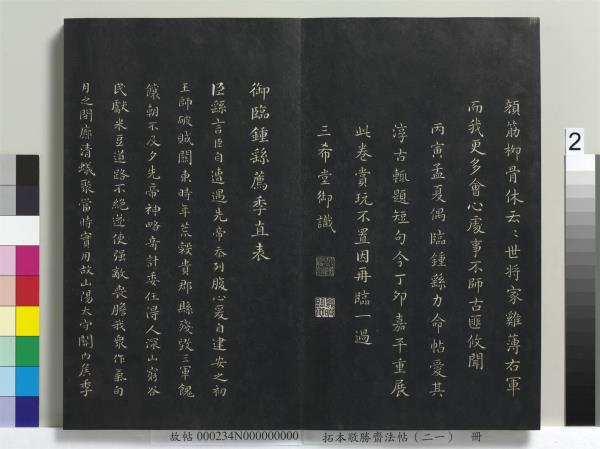 顏筋柳骨休云〻世將家雞薄右軍
而我更多會心處事不師古匪攸聞
丙寅孟夏偶臨鍾繇力命帖愛其
淳古輒題短句今丁卯嘉平重展
此卷賞玩不置因再臨一過
三希堂御識
御臨鍾繇薦季直表
臣繇言臣自遭遇先帝忝列腹心爰自建安之初
王師破賊關東時年荒穀貴郡縣殘毀三軍餽
饟朝不及夕先帝神略奇計委任得人深山窮谷
民獻米豆道路不絕遂使强敵喪膽我衆作氣旬
月之閒廓清蟻聚當時實用故山陽太守關內侯季
2
故帖 000234N000000000 拓本敬勝齋法帖(二一) 冊